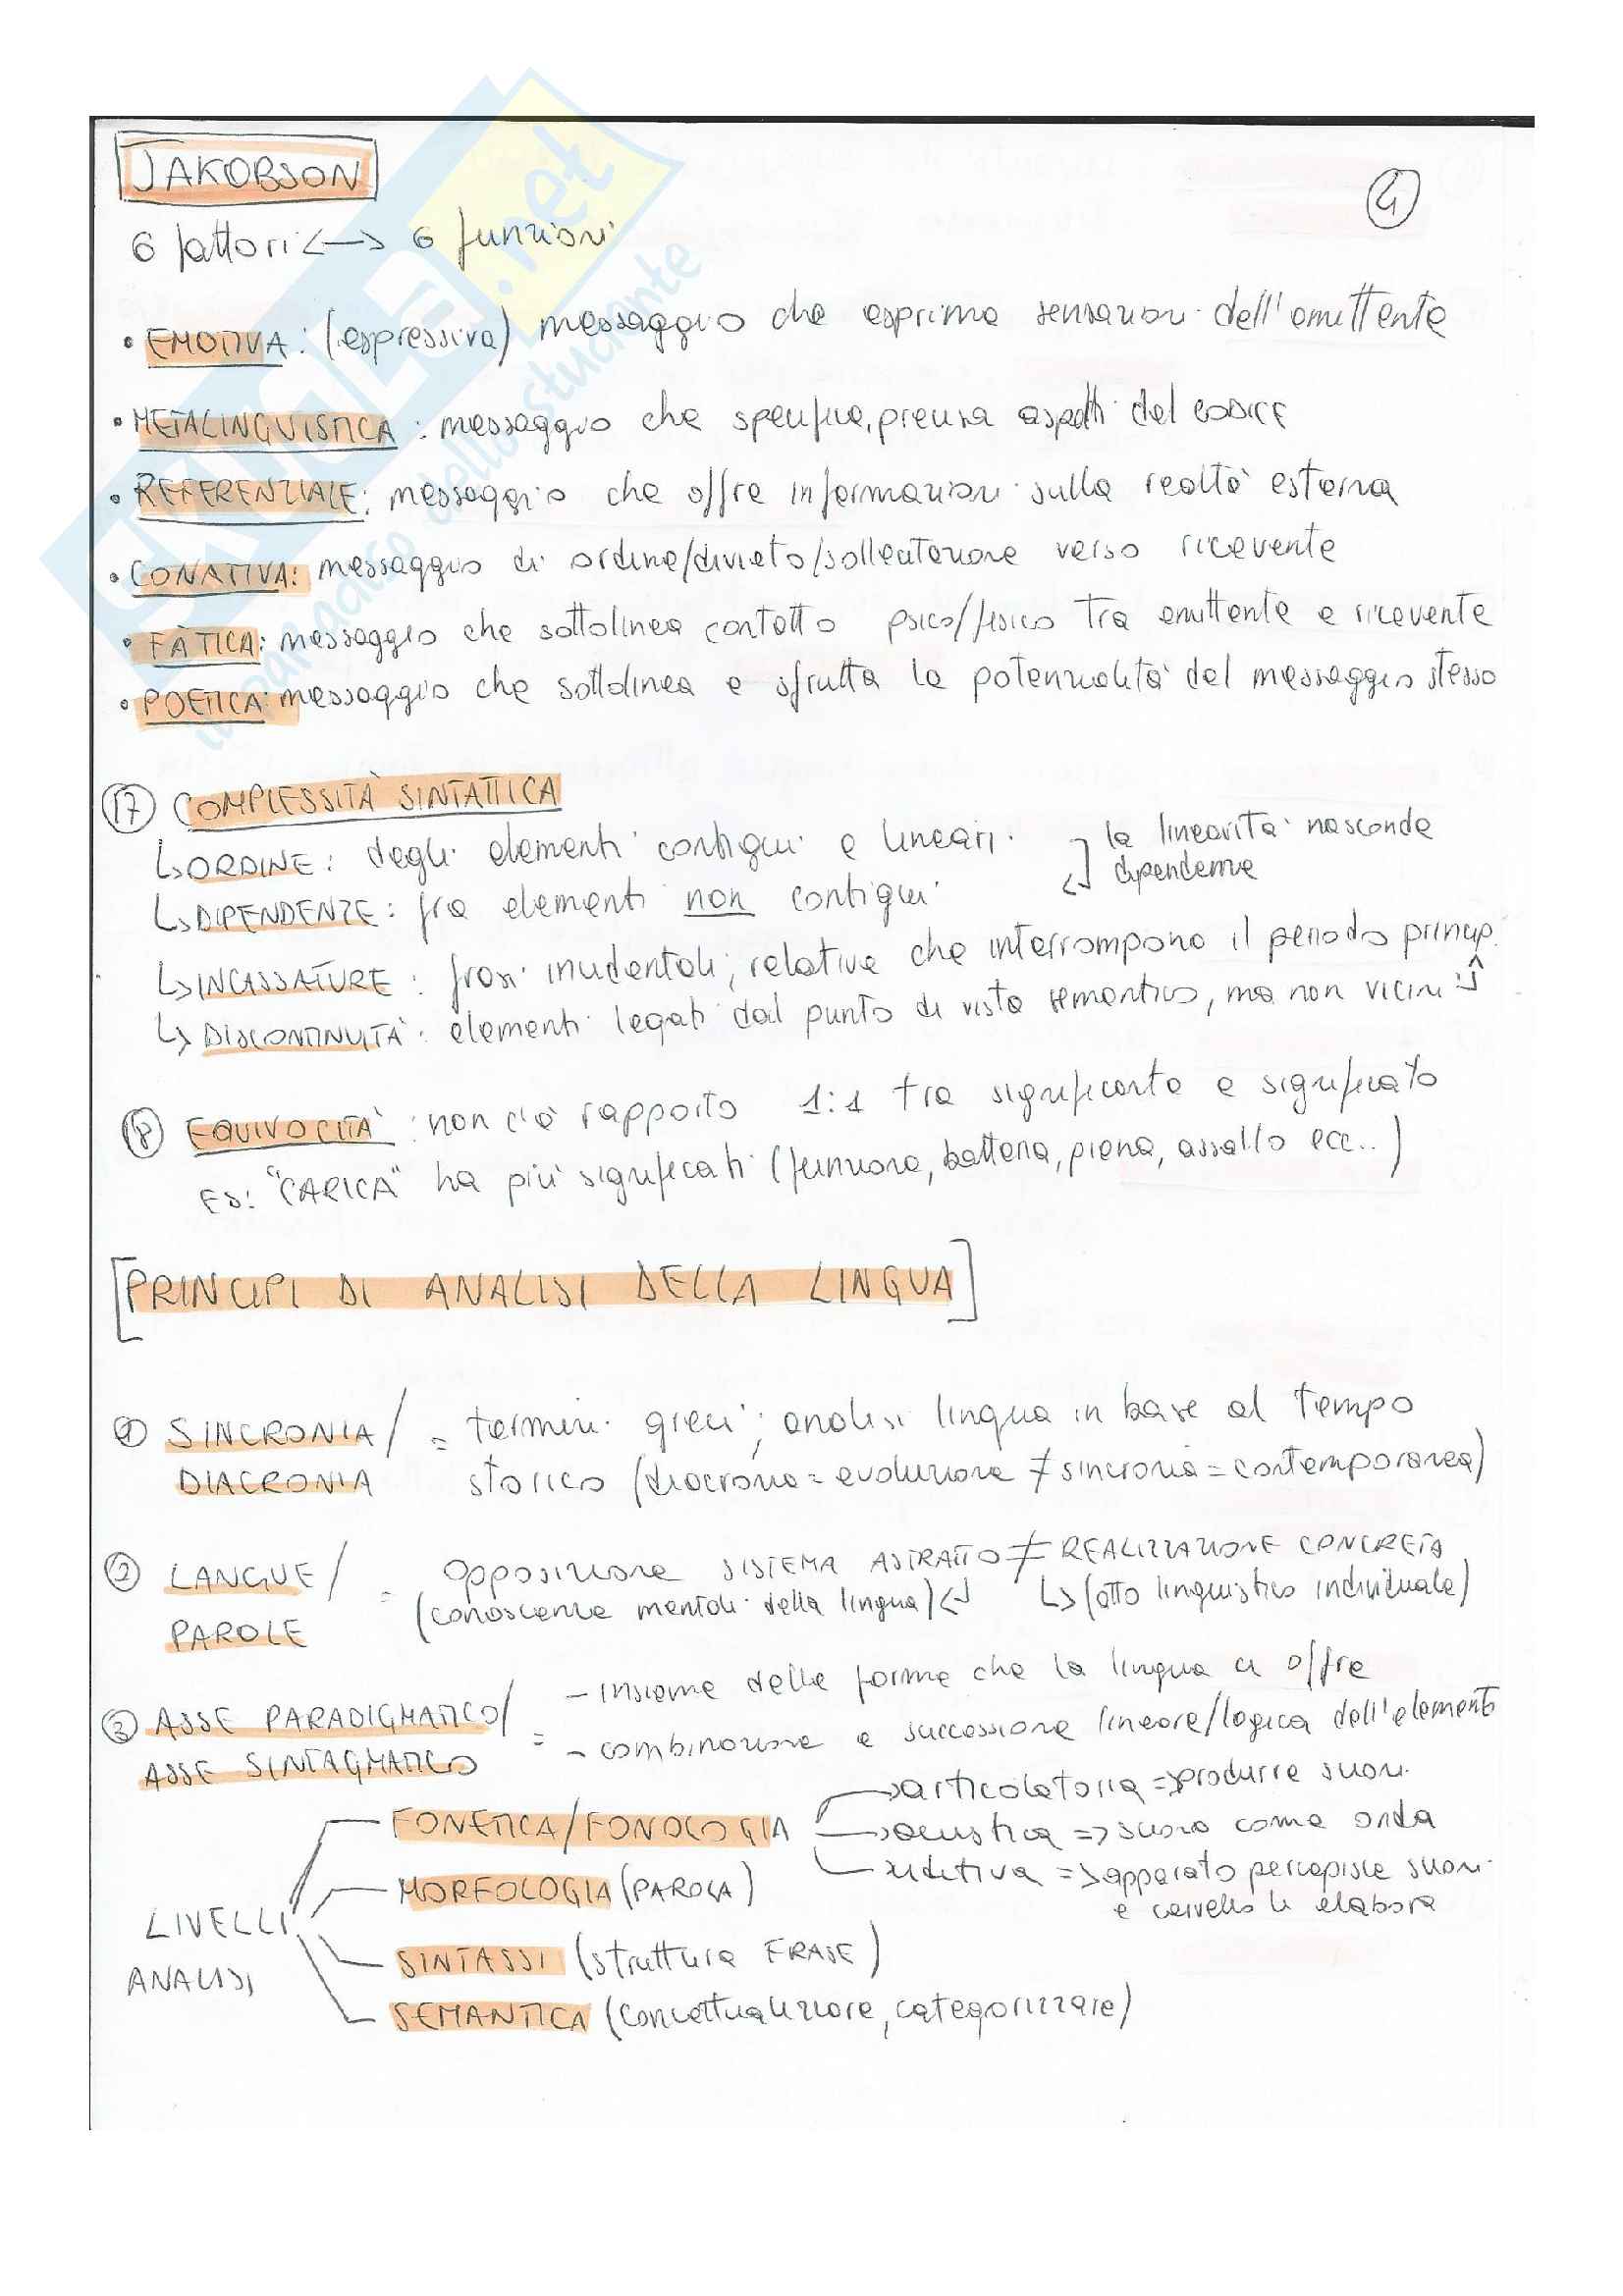 JAKOBSON
4
6 fattori <-> 6 funzioni
• EMOTIVA: (espressiva) messaggio che esprime sensazioni dell'emittente
• METALINGUISTICA: messaggio che specifica, precisa aspetti del codice
• REFERENZIALE: messaggio che offre informazioni sulla realtà esterna
• CONATIVA: messaggio di ordine/divieto/sollecitazione verso ricevente
• FÀTICA: messaggio che sottolinea contatto psico/fisico tra emittente e ricevente
• POETICA: messaggio che sottolinea e sfrutta le potenzialità del messaggio stesso
17 COMPLESSITÀ SINTATTICA
↳ ORDINE: degli elementi contigui e lineari
↳ DIPENDENZE: fra elementi non contigui
la linearità nasconde
dipendenze
↳ INCASSATURE: frasi incidentali, relative che interrompono il periodo princip.
↳ DISCONTINUITÀ: elementi legati dal punto di vista semantico, ma non vicini
18 EQUIVOCITÀ: non c'è rapporto 1:1 tra significante e significato
ES: "CARICA" ha più significati (funzione, batteria, piena, assalto ecc..)
[PRINCIPI DI ANALISI DELLA LINGUA]
① SINCRONIA/ = termini greci; analisi lingua in base al tempo
DIACRONIA storico (diacronia = evoluzione ≠ sincronia = contemporanea)
② LANGUE/ = opposizione SISTEMA ASTRATTO ≠ REALIZZAZIONE CONCRETA
(conoscenze mentali della lingua) ↵ ↳ (atto linguistico individuale)
PAROLE
③ ASSE PARADIGMATICO/ = - insieme delle forme che la lingua ci offre
ASSE SINTAGMATICO - combinazione e successione lineare/logica dell'elemento
FONETICA/FONOLOGIA → articolatoria => produrre suoni
→ acustica => suono come onda
uditiva => apparato percepisce suoni
e cervello li elabora
MORFOLOGIA (PAROLA)
LIVELLI
ANALISI
SINTASSI (struttura FRASE)
SEMANTICA (concettualizzare, categorizzare)
SKUOLA.net
il paradiso dello studente